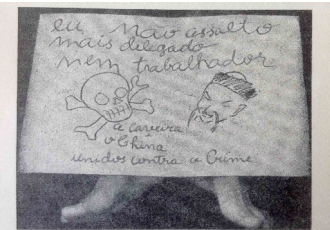 eu não assalto
mais delegado
nem trabalhador
a caveira
o China
unidos contra o Crime